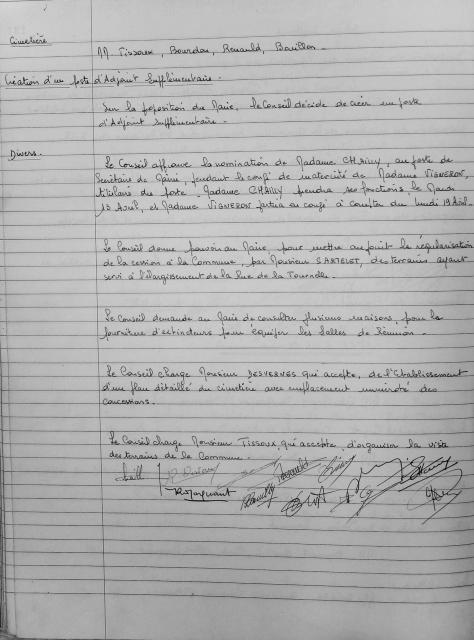 Cimetière
M. Tissoux, Bourdon, Renauld, Bouillon.
Création d'un poste d'Adjoint Supplémentaire.
Sur la proposition du Maire, le Conseil décide de créer un poste
d'Adjoint Supplémentaire.
Divers.
Le Conseil approuve la nomination de Madame CHAILLY, au poste de
Secrétaire de Mairie, pendant le congé de maternité de Madame VIGNERON,
titulaire du poste. Madame CHAILLY prendra ses fonctions le Mardi
13 Avril, et Madame VIGNERON partira en congé à compter du lundi 19 Avril.
Le Conseil donne pouvoir au Maire, pour mettre au point la régularisation
de la cession à la Commune, par Monsieur SARTELET, des terrains ayant
servi à l'élargissement de la Rue de la Tournelle.
Le Conseil demande au Maire de consulter plusieurs maisons, pour la
fourniture d'extincteurs pour équiper les Salles de Réunion.
Le Conseil charge Monsieur DESVERNES qui accepte, de l'Etablissement
d'un plan détaillé du cimetière avec emplacement numéroté des
concessions.
Le Conseil charge Monsieur TISSOUX, qui accepte, d'organiser la visite
des terrains de la Commune.